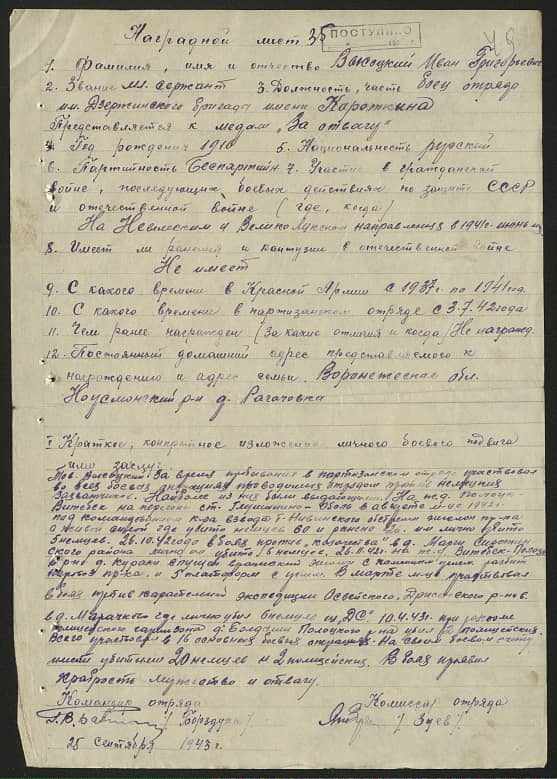 Наградной лист 35
ПОСТУПИЛО
49
1. Фамилия, имя и отчество Высоцкий Иван Григорьевич
2. Звание мл. сержант 3. Должность, часть Боец отряда
им. Дзержинского бригада имени Короткина
Представляется к медали „За отвагу"
4. Год рождения 1910 5. Национальность русский
6. Партийность Беспартийн. 7. Участие в гражданской
войне, последующих боевых действиях по защите СССР
и отечественной войне (где, когда)
На Невельском и Великолукском направлениях в 1941г.
8. Имеет ли ранения и контузии в отечественной войне
Не имеет
9. С какого времени в Красной Армии с 1937г. по 1941год.
10. С какого времени в партизанском отряде с 3.7.42года
11. Чем ранее награжден (За какие отличия и когда) Не награжд.
12. Постоянный домашний адрес представляемого к
награждению и адрес семьи. Воронежская обл.
р-н д. Рагачовка
I Краткое, конкретное изложение личного боевого подвига
или заслуг.
Тов. Высоцкий За время пребывания в партизанском отряде участвовал
во всех боевых операциях проводимых отрядом против немецких
захватчиков. Наиболее из них были выдающими. На ж.д. Полоцк-
Витебск на перегоне ст. Оболь в августе м-це 1942г.
под командованием к-ра взвода т. эшелон пр-ка
с живой силой где убито немцев 60 и ранено он лично убил
5 немцев. 26.10.42года в боях против в д. Сиротин-
ского района лично он убил 6 немцев. 26.11.42г. на ж.д. Витебск-Полоцк
в р-не д. спущен вражеский эшелон с разбит
пр-ка и 5 платформ с В марте м-це участвовал
в боях против карательной экспедиции Освейского, Дриссенского р-нов.
в д. где лично убил 10.4.43г. при
полицейского гарнизона д. Полоцкого р-на убил 2 полицейских.
Всего участвовал в 16 основных боевых операциях. На своем боевом счету
имеет убитыми 20 немцев и 2 полицейских. В боях проявил
храбрость мужество и отвагу.
Командир отряда Комиссар отряда
/ / / Зуев /
25 сентября 1943г.